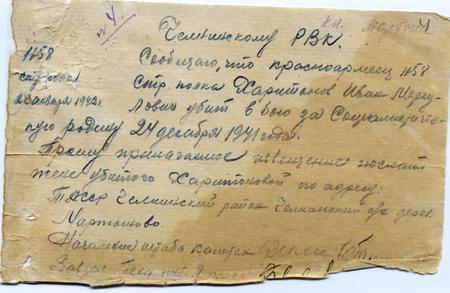 N 4
Челнинскому РВК.
1158
стр. полк
2 января 1942г.
Сообщаю, что красноармеец 1158
стр полка Харитонов Иван
лович убит в бою за Социалистичес-
кую родину 24 декабря 1941 года.
Прошу прилагаемое извещение послать
жене убитого Харитоновой по адресу:
ТАССР Челнинский район Челнинский дерев.
Мартошово
Начальник штаба капитан
Завдел полка